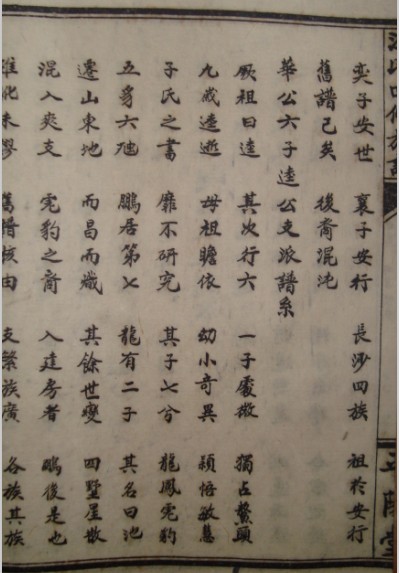 奕子安世 襄子安行 長沙四族 祖於安行
舊譜已矣 後裔混沌
華公六子逵公支派譜系
厥祖曰逵 其次行六 一子處 獨占鰲頭
九歲逵逝 母祖瞻依 幼小奇異 穎悟敏慧
子氏之書 靡不研究 其子七兮 龍鳳 豹
五 六 鵬居第七 龍有二子 其名曰池
遷山東地 而昌而熾 其餘世變 四墅星散
混入爽支 豹之裔 入建房者 鵬後是也
化未 核由 支繁族廣 各族其族